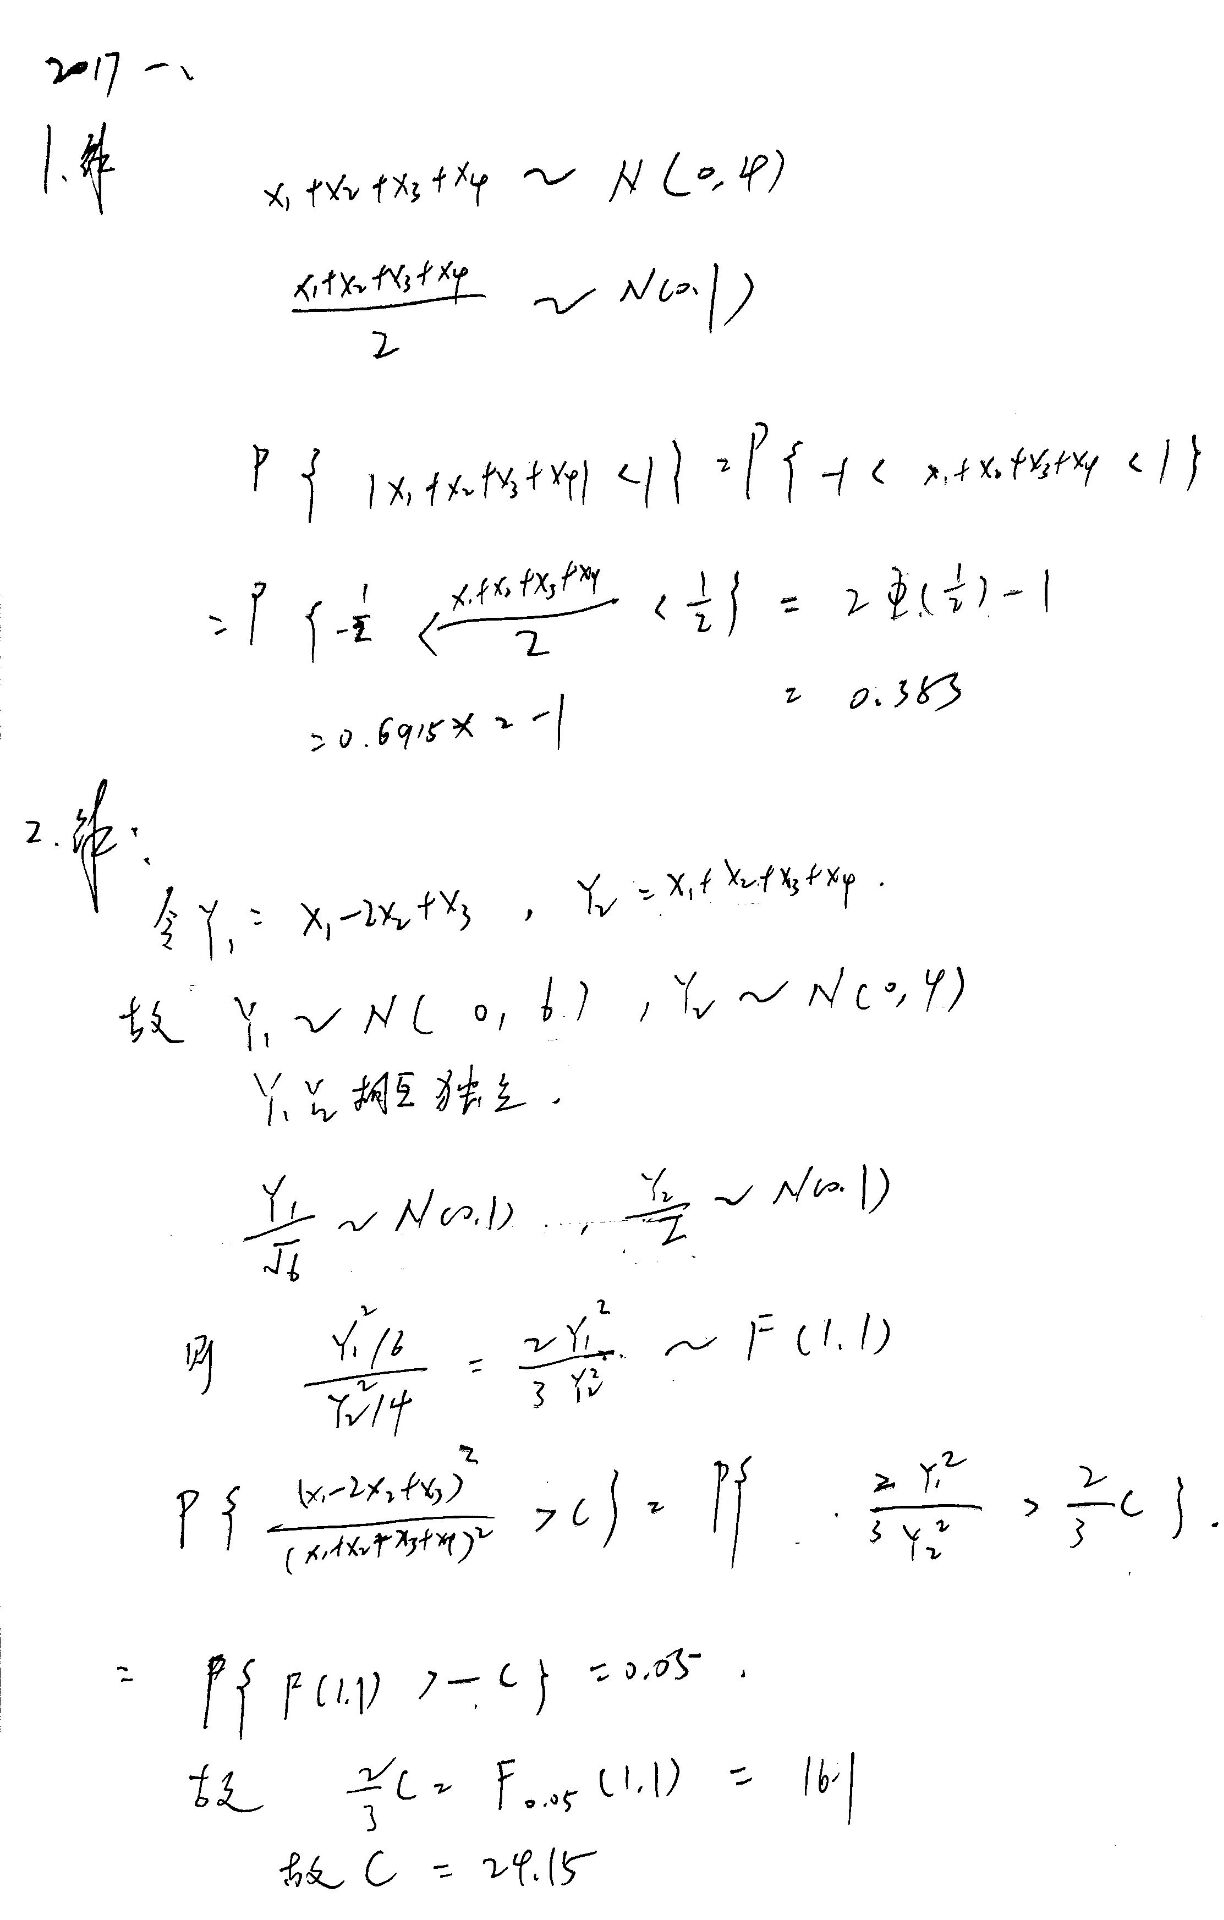 2017 一、
1.解
x₁+x₂+x₃+x₄ ~ N(0,4)
(x₁+x₂+x₃+x₄)/2 ~ N(0.1)
P{|x₁+x₂+x₃+x₄|<1}=P{-1< x₁+x₂+x₃+x₄ <1}
=P{-1/2 < (x₁+x₂+x₃+x₄)/2 < 1/2} = 2Φ(1/2)-1
=0.6915×2-1 = 0.383
2.解:
令Y₁= x₁-2x₂+x₃ , Y₂=x₁+x₂+x₃+x₄.
故 Y₁~N(0,6) , Y₂~N(0,4)
Y₁ Y₂ 相互独立.
Y₁/√6 ~ N(0.1) , Y₂/2 ~ N(0.1)
则 (Y₁²/6)/(Y₂²/4) = 2Y₁²/3Y₂² ~ F(1.1)
P{(x₁-2x₂+x₃)²/(x₁+x₂+x₃+x₄)² >C} = P{2Y₁²/3Y₂² > 2/3 C}.
= P{F(1.1) > C} =0.05.
故 2/3 C = F₀.₀₅(1.1) = 16.1
故 C = 24.15